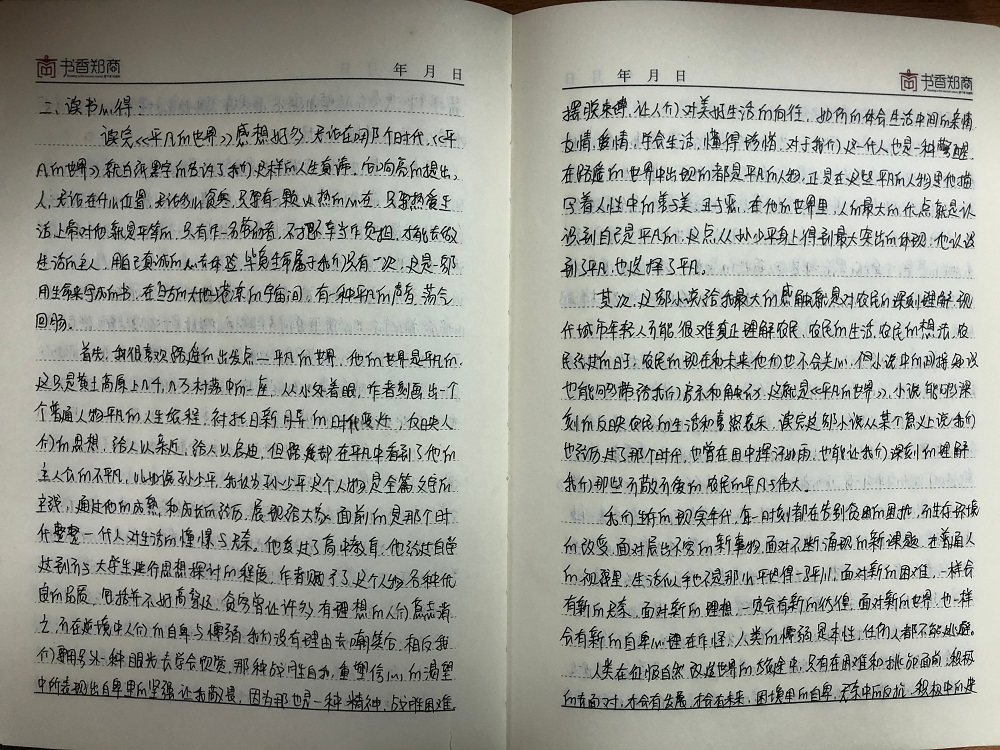 书香郑商
年 月 日
二、读书心得:
读完《平凡的世界》感想好多,无论在哪个时代,《平
凡的世界》就白纸黑字的告诉了我们这样的人生真谛,向高的提出,
人,无论在什么位置,无论多么贫寒,只要有一颗火热的心在,只要热爱生
活上帝对他就是平等的,只有作一名劳动者,不把不幸当作负担,才能去做
生活的主人,用自己真诚的心去体验,毕竟生命属于我们只有一次,这是一部
用生命来写成的书,在的大地与苍凉的宇宙间,有一种平凡的声音,荡气
回肠。
首先,我很喜欢路遥的出发点——平凡的世界,他的世界是平凡的,
这只是黄土高原上几千几万村落中的一座,从小处着眼,作者刻画出一个
个普通人物平凡的人生旅程,衬托日新月异的时代变迁,反映人
们的思想,给人以亲近,给人以启迪,但路遥却在平凡中看到了他的
主人公的不平凡,比如说孙少平,我认为孙少平这个人物是全篇文章的
主线,通过他的成熟和成长的经历,展现给大家面前的是那个时
代整整一代人对生活的憧憬与无奈。他受过了高中教育,他经过自学
达到可与大学生进行思想探讨的程度,作者赋予了这个人物各种优
良的品质,包括并不好高骛远,贫穷曾让许多有理想的人们为志
之,而在逆境中人们的自卑与懦弱我们没有理由去嘲笑它,相反我
们要用另外一种眼光去学会欣赏,那种战胜自我,重塑信心的渴望
中所表现出自卑里的坚强让我敬畏,因为那也是一种精神,战胜困难,
年 月 日
书香郑商
摆脱束缚,让人们对美好生活的向往,如何的体会生活中间的亲情
友情,爱情,体会生活,懂得珍惜,对于我们这一代人也是一种警醒,
在路遥的世界中出现的都是平凡的人物,正是在这些平凡的人物里他描
写着人性中的善与美,丑与恶,在他的世界里,人的最大的优点就是认
识到自己是平凡的,这点从孙少平身上得到最大突出的体现,他认识
到了平凡,也选择了平凡。
其次,这部小说给我最大的感触就是对农民的深刻理解,现
代城市年轻人可能很难真正理解农民,农民的生活,农民的想法,农
民经过的日子,农民的现在和未来他们也不会关心,但小说中的间接知识
也能够带给我们启示和触动,这就是《平凡的世界》,小说能够深
刻的反映农民的生活和喜怒哀乐,读完这部小说从某个意义上说我们
也经历过了那个时代,也曾在田中挥汗如雨,也能让我们深刻的理解
我们那些不散不倦的农民的平凡与伟大。
我们生存的现实年代,每一时刻都在受到贫困的困扰,而生存环境
的改变,面对层出不穷的新事物,面对不断涌现的新课题,在普通人
的视野里,生活似乎也不是那么平坦得一马平川,面对新的困难,一样会
有新的无奈,面对新的理想,一定会有新的彷徨,面对新的世界,也一样
会有新的自卑心理在作怪,人类的懦弱是本性,任何人都不能逃避。
人类在征服自然改造世界的旅途中,只有在困难和挑战面前,积极
的去面对,才会有发展,才会有未来,困境里的自卑,无奈中的反抗,积极中的建